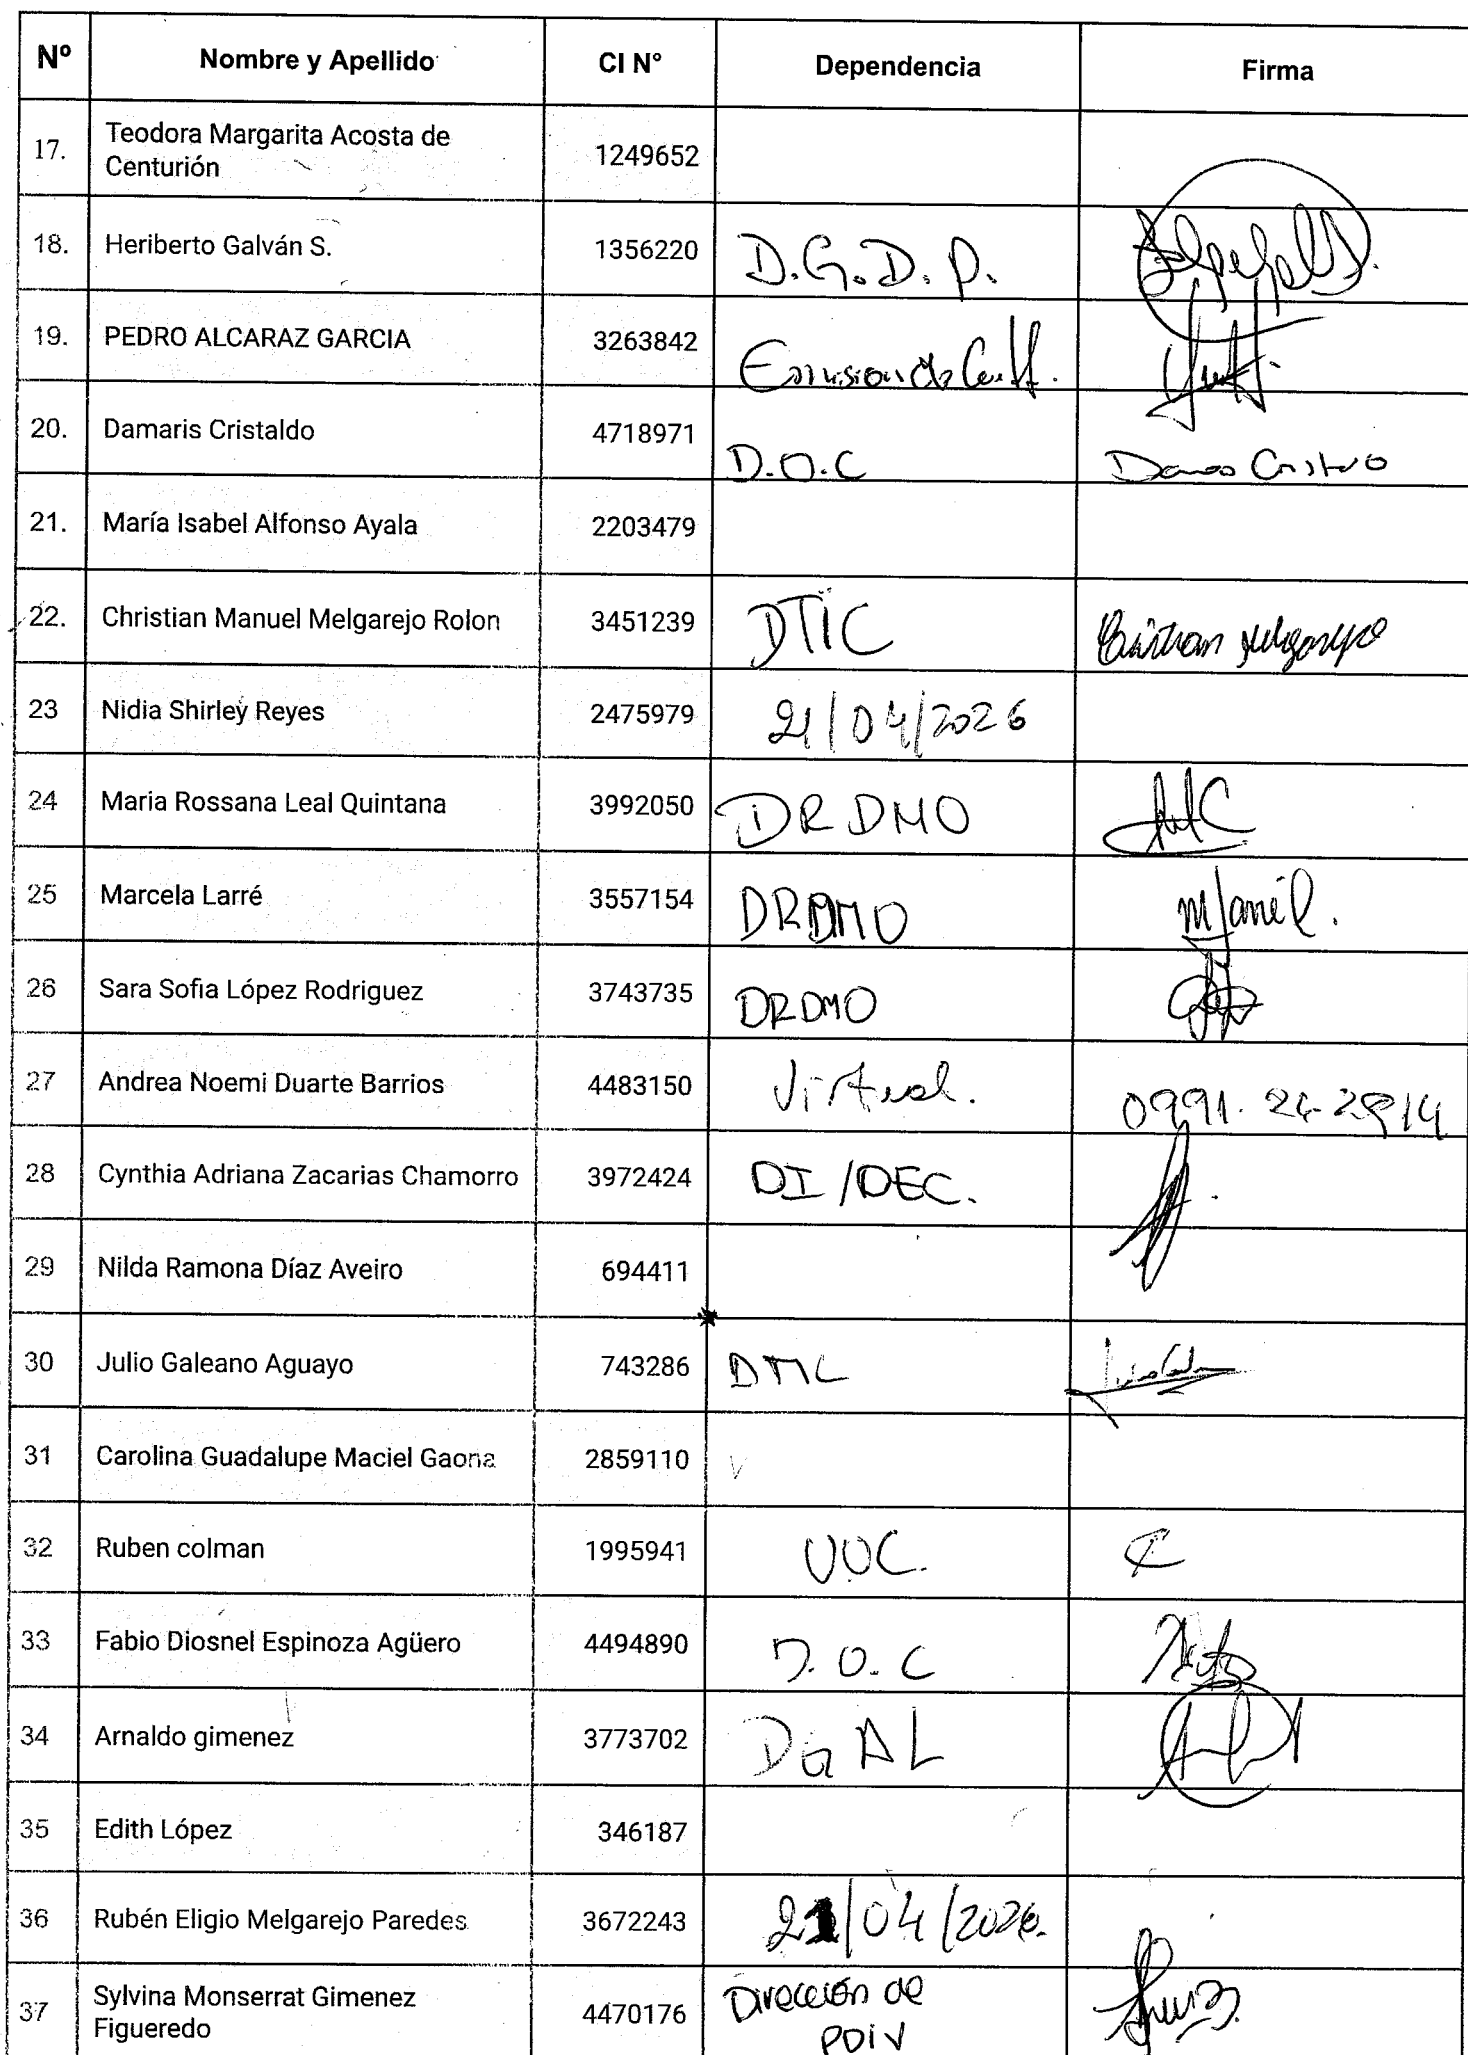 Nº Nombre y Apellido CI N° Dependencia Firma
17. Teodora Margarita Acosta de
Centurión 1249652
18. Heriberto Galván S. 1356220 D.G.D.P.
19. PEDRO ALCARAZ GARCIA 3263842 Emision de
20. Damaris Cristaldo 4718971 D.O.C
21. María Isabel Alfonso Ayala 2203479
22. Christian Manuel Melgarejo Rolon 3451239 DTIC
23 Nidia Shirley Reyes 2475979 21/04/2026
24 Maria Rossana Leal Quintana 3992050 DRDMO
25 Marcela Larré 3557154 DRDMO
26 Sara Sofia López Rodriguez 3743735 DRDMO
27 Andrea Noemi Duarte Barrios 4483150 Virtual.
28 Cynthia Adriana Zacarias Chamorro 3972424 DI/DEC.
29 Nilda Ramona Díaz Aveiro 694411
30 Julio Galeano Aguayo 743286
31 Carolina Guadalupe Maciel Gaona 2859110
32 Ruben colman 1995941 UOC.
33 Fabio Diosnel Espinoza Agüero 4494890 D.O.C
34 Arnaldo gimenez 3773702 DGAL
35 Edith López 346187
36 Rubén Eligio Melgarejo Paredes 3672243 21/04/2026.
37 Sylvina Monserrat Gimenez
Figueredo 4470176 Dirección de
PDIV